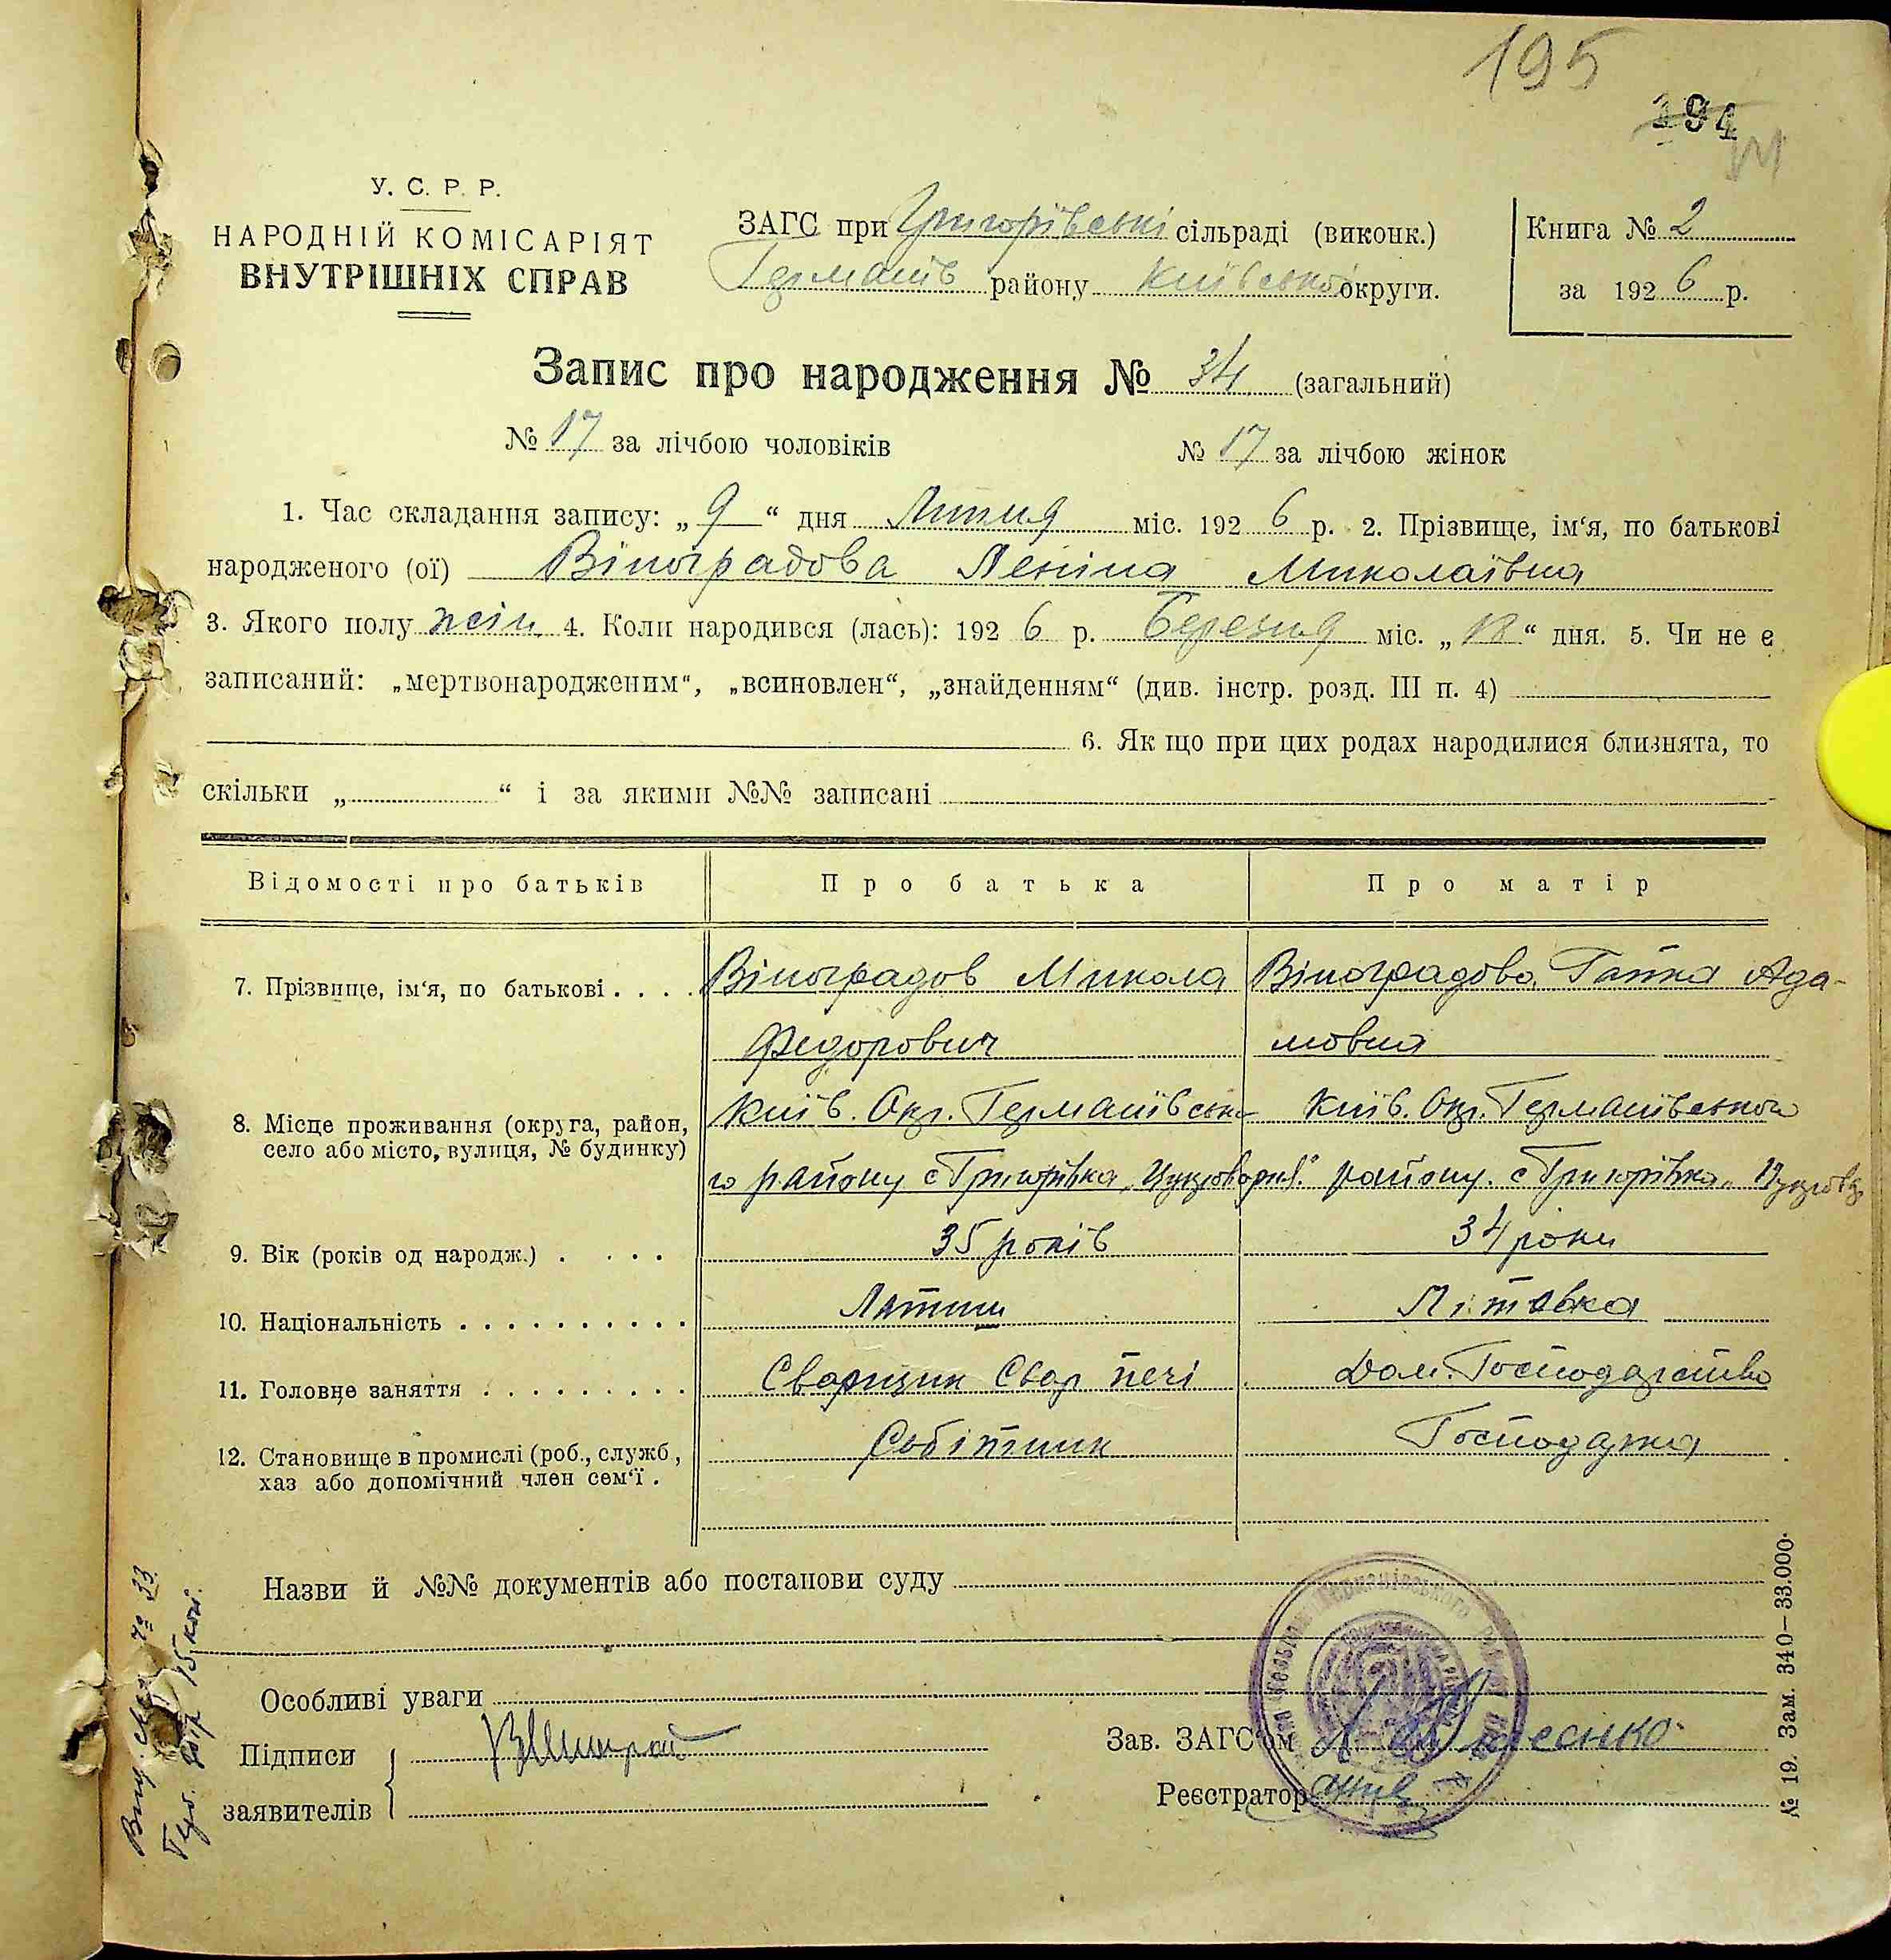 195
194
У. С. Р. Р.
НАРОДНІЙ КОМІСАРІЯТ
ВНУТРІШНІХ СПРАВ
ЗАГС при Григорівські сільраді (виконк.)
Германів району Київської округи.
Книга № 2
за 1926 р.
Запис про народження № 34 (загальний)
№ 17 за лічбою чоловіків
№ 17 за лічбою жінок
1. Час складання запису: „9“ дня Липня міс. 1926 р. 2. Прізвище, ім‘я, по батькові
народженого (ої) Віноградова Леніна Миколаївна
3. Якого полу жін. 4. Коли народився (лась): 1926 р. Березня міс. „18“ дня. 5. Чи не є
записаний: „мертвонародженим“, „всиновлен“, „знайденням“ (див. інстр. розд. III п. 4)
6. Як що при цих родах народилися близнята, то
скільки „ “ і за якими №№ записані
Відомості про батьків
Про батька
Про матір
7. Прізвище, ім‘я, по батькові . . . .
Віноградов Микола
Федорович
Віноградова Ганна Ада-
мовна
8. Місце проживання (округа, район,
село або місто, вулиця, № будинку)
Київ. Окр. Германівсько
го району с Григорівка „Цукроварня“
Київ. Окр. Германівської
району. с Григорівка „
9. Вік (років од народж.) . . . .
35 років
34 роки
10. Національність . . . . . . . . . .
Латиш
Літовка
11. Головне заняття . . . . . . . . .
Сварщик Свар печі
Дом. Господарство
12. Становище в промислі (роб., служб,
хаз або допомічний член сем‘ї .
Робітник
Господарка
Назви й №№ документів або постанови суду
Особливі уваги
Підписи
заявителів
Зав. ЗАГСом
Реєстратор
№ 19. Зам. 340—33.000.
№ 33
15 коп.